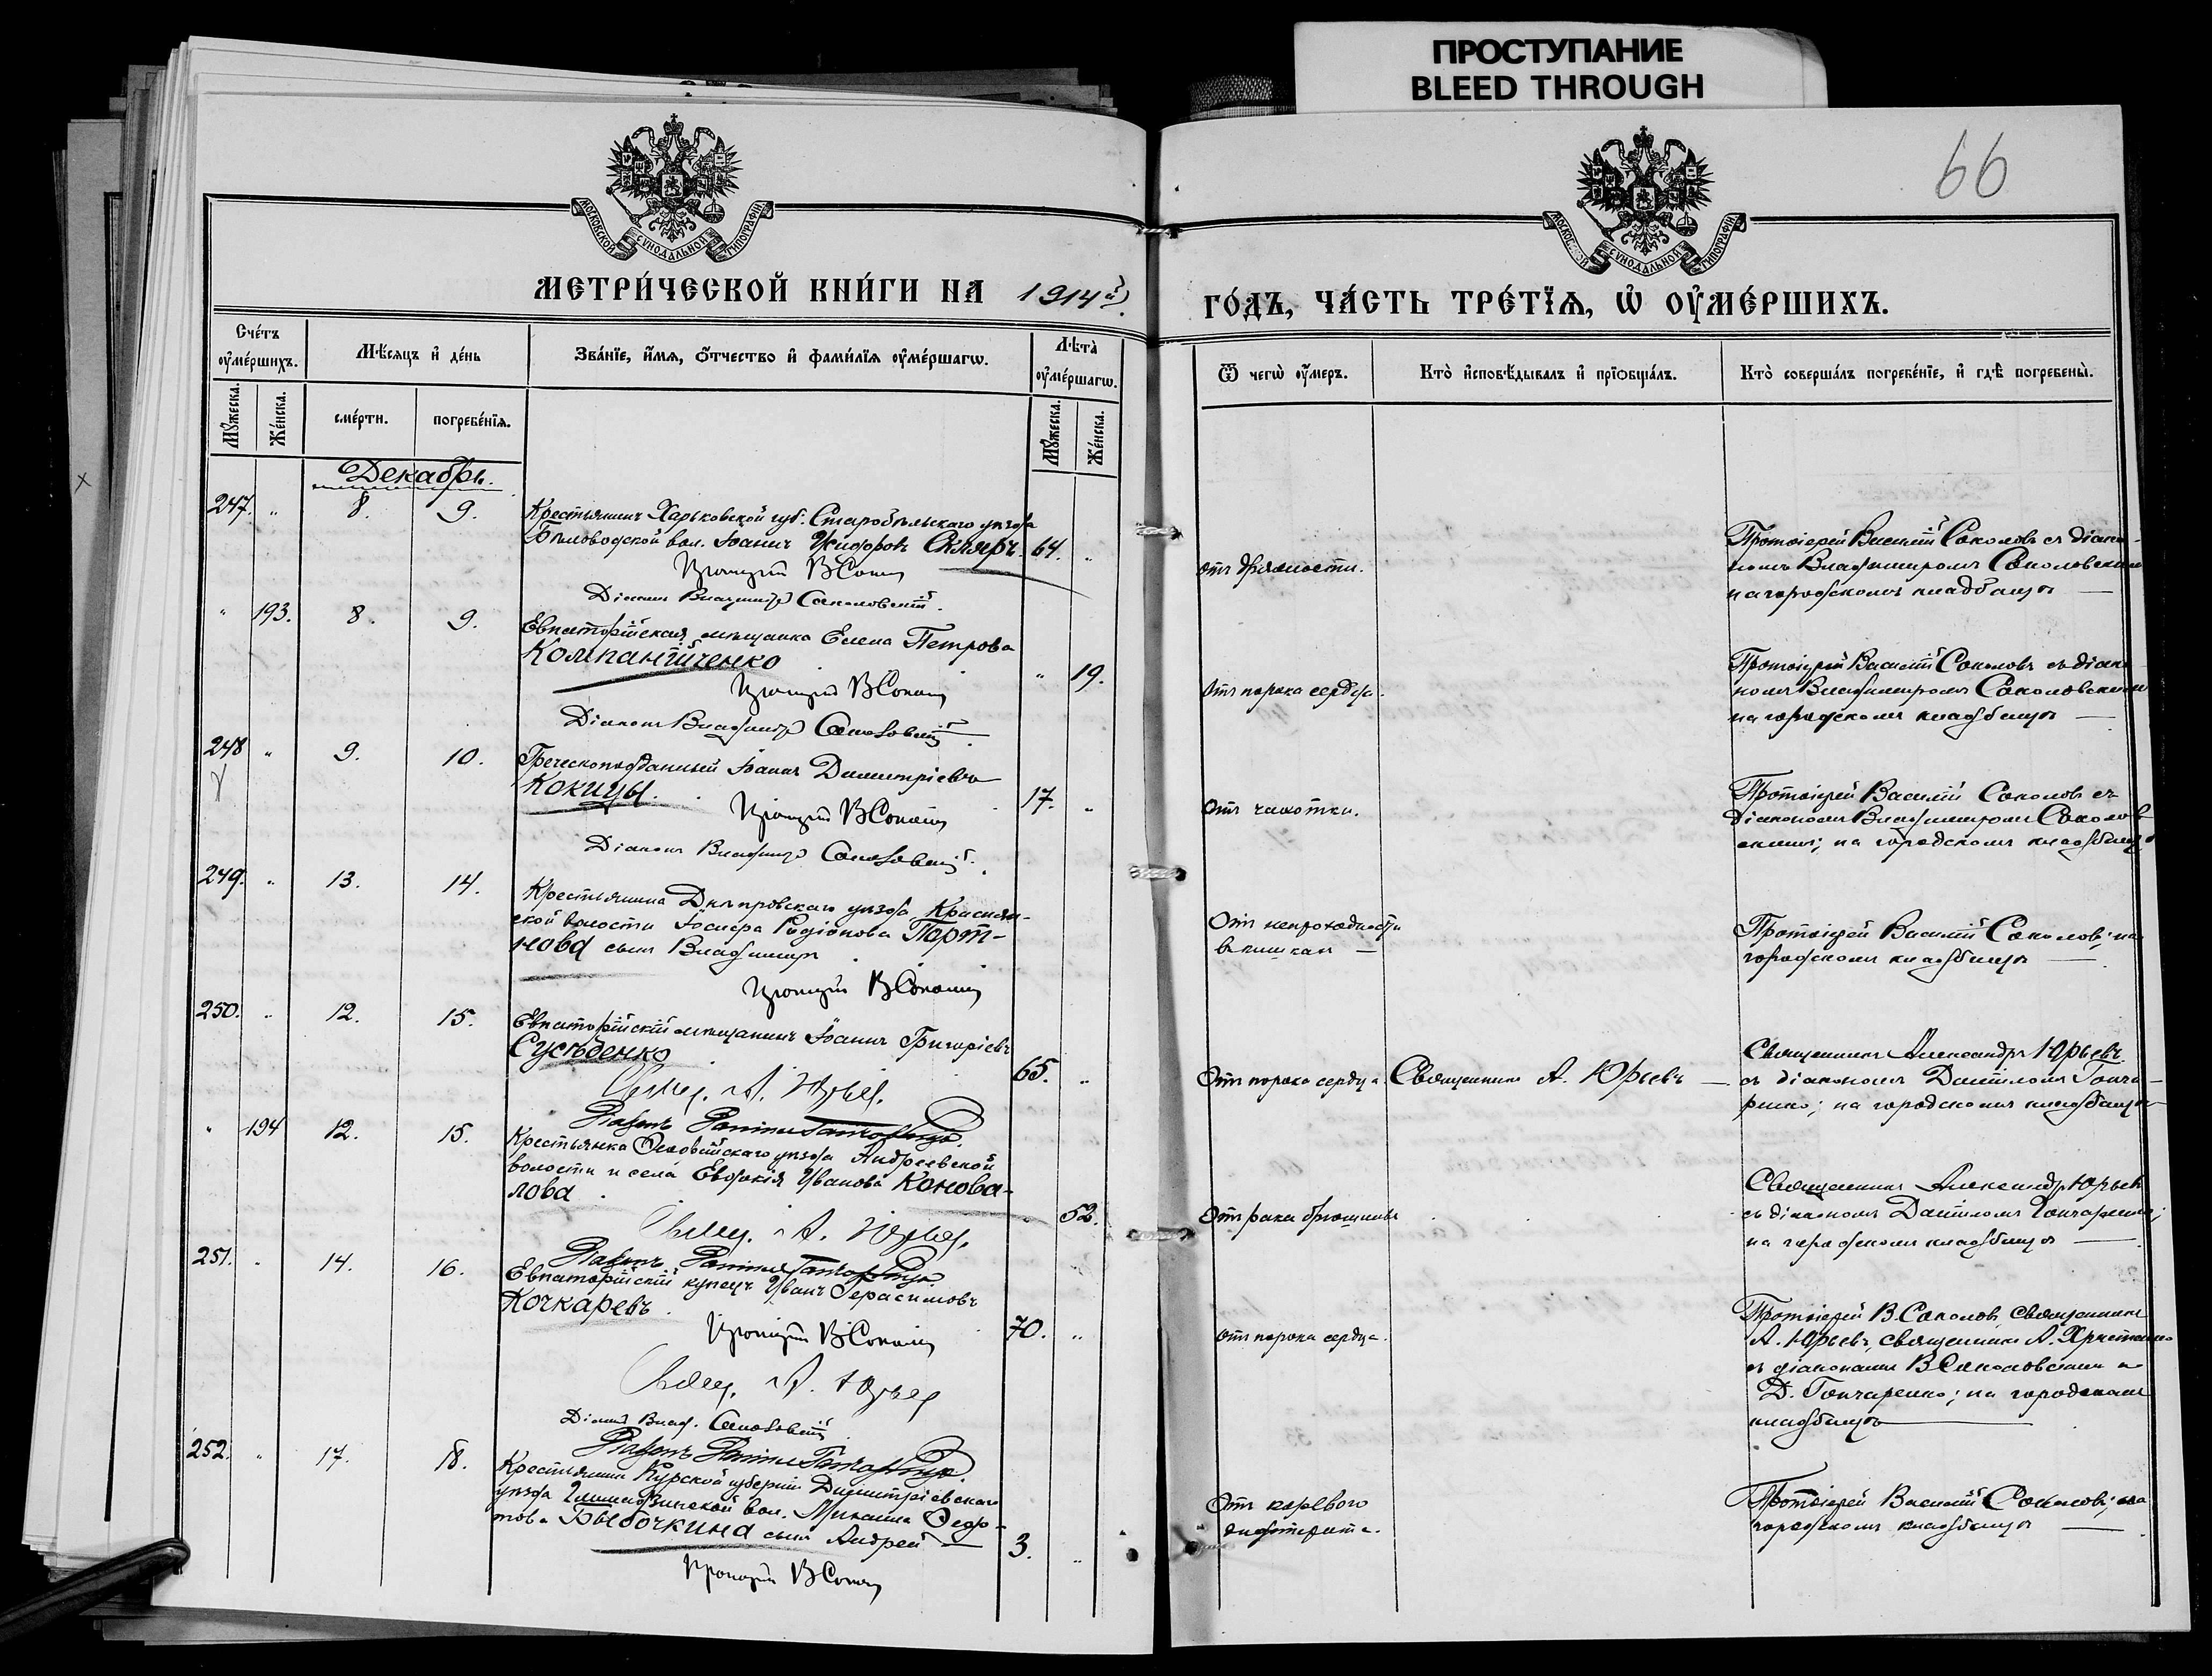 ПРОСТУПАНИЕ
BLEED THROUGH
66
МОСКОВСКОЙ СУНОДАЛЬНОЙ ТИПОГРАФІИ
МОСКОВСКОЙ СУНОДАЛЬНОЙ ТИПОГРАФІИ
МЕТРИ́ЧЕСКОЙ КНИ́ГИ НА 1914й
ГО́ДЪ, ЧА́СТЬ ТРЕ́ТЇѦ, Ѡ ОУМЕ́РШИХЪ.
Сче́тъ оуме́ршихъ.
Мѣсѧцъ и де́нь
Зва́нїе, и́мѧ, о́тчество и фами́лїѧ оуме́ршагѡ.
Лѣта̀ оуме́ршагѡ.
Ѿ чегѡ̀ оу́меръ.
Кто̀ исповѣ́дывалъ и прїобща́лъ.
Кто̀ соверша́лъ погребе́нїе, и гдѣ̀ погребены̀.
Мꙋ́жеска.
Же́нска.
сме́рти.
погребе́нїѧ.
Мꙋ́жеска.
Же́нска.
Декабрь.
247. " 8. 9.
Крестьянинъ Харьковской губ. Старобѣльскаго уѣзда
Бѣловодской вол. Іоаннъ Исидоровъ Скляръ. 64. "
Протоіерей В Соколовъ
Діаконъ Владиміръ Соколовскій.
отъ дряхлости.
Протоіерей Василій Соколовъ съ діако-
номъ Владиміромъ Соколовскимъ
на городскомъ кладбищѣ
" 193. 8. 9.
Евпаторійская мѣщанка Елена Петрова
Компанійченко
" 19.
Протоіерей В Соколовъ
Діаконъ Владиміръ Соколовскій
Отъ порока сердца.
Протоіерей Василій Соколовъ съ діако-
номъ Владиміромъ Соколовскимъ
на городскомъ кладбищѣ
248 " 9. 10.
Греческоподданный Іоаннъ Димитріевъ
Кокицы.
17. "
Протоіерей В Соколовъ
Діаконъ Владиміръ Соколовскій.
Отъ чахотки.
Протоіерей Василій Соколовъ съ
діакономъ Владиміромъ Соколов
скимъ; на городскомъ кладбищѣ
249. " 13. 14.
Крестьянина Днѣпровскаго уѣзда
ской волости Іосифа Родіонова Порт-
нова сынъ Владиміръ
Протоіерей В Соколовъ
Отъ непроходимости
въ кишкахъ
Протоіерей Василій Соколовъ; на
городскомъ кладбищѣ
250. " 12. 15.
Евпаторійскій мѣщанинъ Іоаннъ Григоріевъ
Сусѣденко
65. "
Свящ. А. Юрьевъ.
Отъ порока сердца. Священникъ А. Юрьевъ
Священникъ Александръ Юрьевъ
съ діакономъ Даніиломъ Гонча-
ренко; на городскомъ кладбищѣ
" 194 12. 15.
Крестьянка уѣзда Андреевской
волости и села Евдокія Иванова Конова-
лова
" 52.
Свящ. А. Юрьевъ.
Отъ рака брюшины
Священникъ Александръ Юрьевъ
съ діакономъ Даніиломъ Гончаренко;
на городскомъ кладбищѣ
251. " 14. 16.
Евпаторійскій купецъ Иванъ Герасимовъ
Кочкаревъ.
70. "
Протоіерей В Соколовъ
Свящ. А. Юрьевъ
Діаконъ Влад. Соколовскій
отъ порока сердца.
Протоіерей В. Соколовъ, Священникъ
А. Юрьевъ, священникъ А.
съ діаконами В Соколовскимъ и
Д. Гончаренко; на городскомъ
кладбищѣ
252. " 17. 18.
Крестьянина Курской губерніи Димитріевскаго
уѣзда вол. Михаила Ѳедо-
това Выбочкина сынъ Андрей
3. "
Протоіерей В Соколовъ
Отъ
дифтерита.
Протоіерей Василій Соколовъ; на
городскомъ кладбищѣ